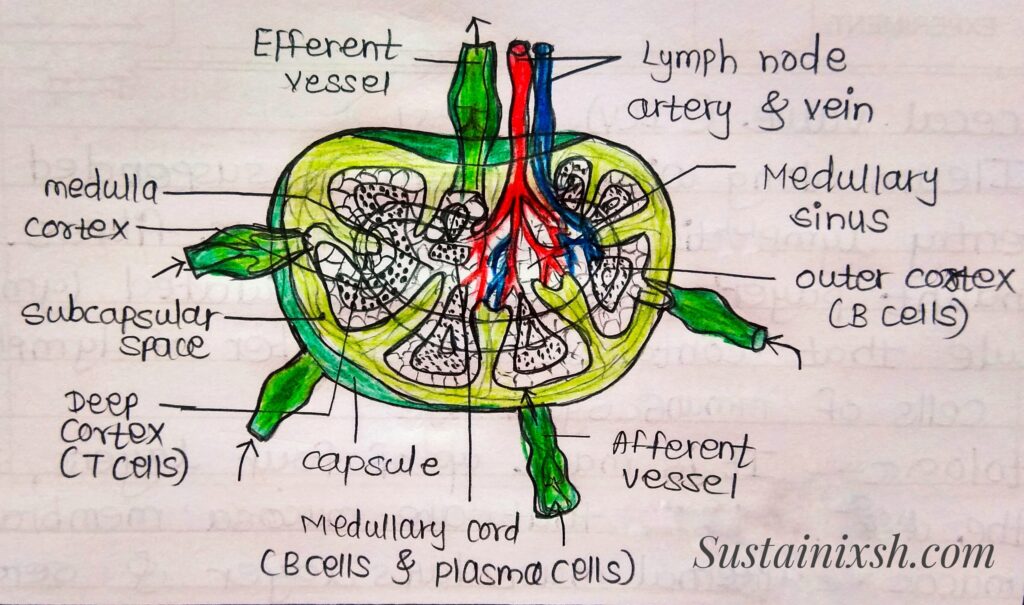 Efferent
vessel
Lymph node
artery & vein
medulla
cortex
Medullary
sinus
outer cortex
(B cells)
subcapsular
space
Deep
cortex
(T cells)
capsule
Afferent
vessel
Medullary cord
(B cells & plasma cells)
Sustainixsh.com